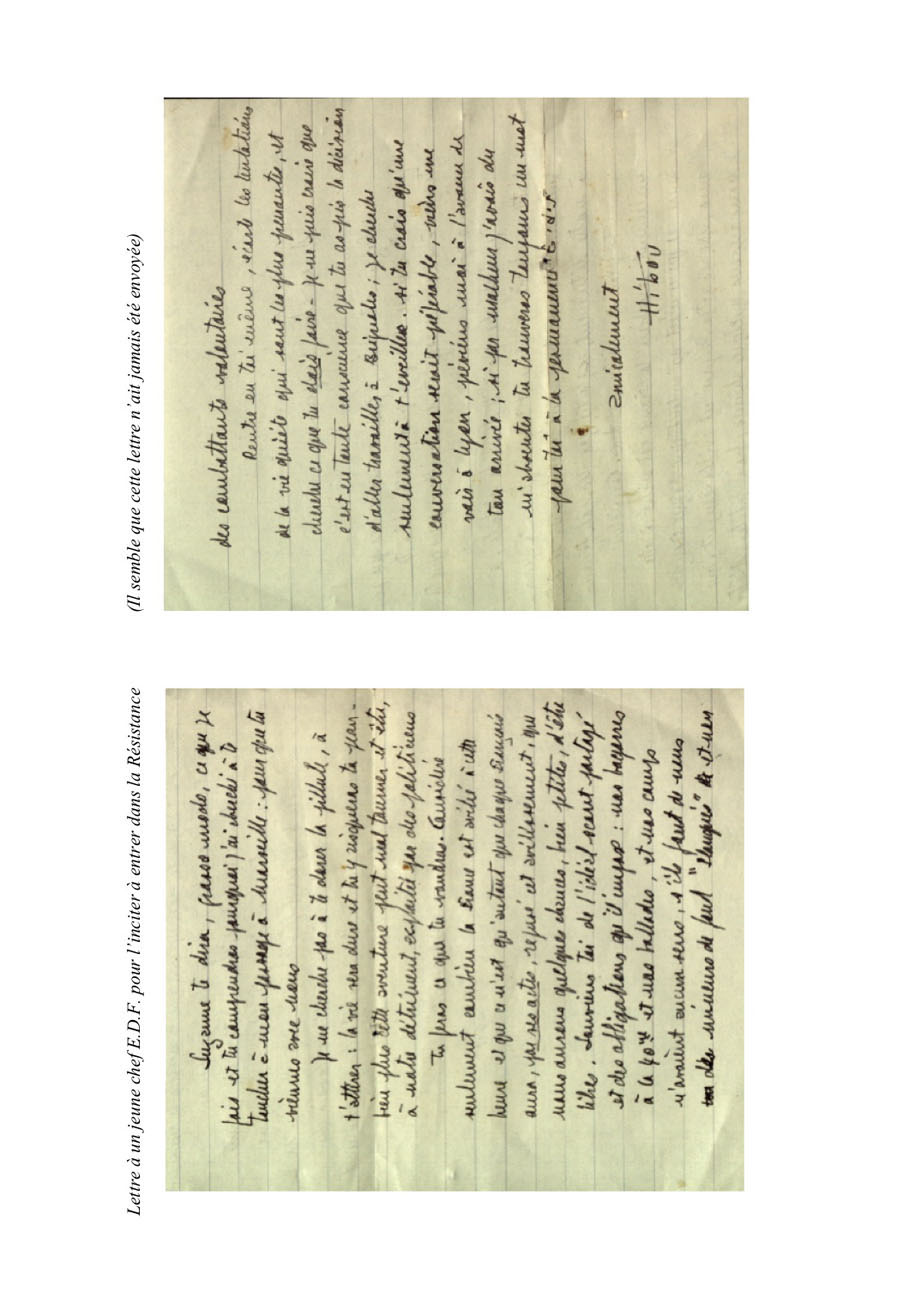 Lettre à un jeune chef E.D.F. pour l'inciter à entrer dans la Résistance
(Il semble que cette lettre n'ait jamais été envoyée)
Suzanne te dira, grosso modo, ce que je
fais et tu comprendras pourquoi j'ai cherché à te
toucher à mon passage à Marseille : pour que tu
viennes avec nous
Je ne cherche pas à te dorer la pillule, à
t'attirer : la vie sera dure et tu y risqueras ta peau -
bien plus cette aventure peut mal tourner et être,
à notre détriment, exploitée par des politiciens
Tu feras ce que tu voudras. Considère
seulement combien la France est avilie à cette
heure et que ce n'est qu'autant que chaque Français
aura, par ses actes, refusé cet avilissement, que
nous aurons quelques chances, bien petites, d'être
libres. Souviens toi de l'idéal scout partagé
et des obligations qu'il impose : nos bagarres
à la 40ème et nos ballades, et nos camps
n'avaient aucun sens, s'ils font de nous
des mineurs de fond "planqués" et non
des combattants volontaires
Rentre en toi même, écarte les tentations
de la vie quiète qui sont les plus prenantes, et
cherche ce que tu dois faire - Je ne puis croire que
c'est en toute conscience que tu as pris la décision
d'aller travailler à ; je cherche
seulement à t'éveiller. si tu crois qu'une
conversation serait préférable, viens me
voir à Lyon, préviens moi à l'avance de
ton arrivée ; si par malheur j'avais du
m'absenter tu trouveras toujours un mot
pour toi à la permanence
Amicalement
Hibou